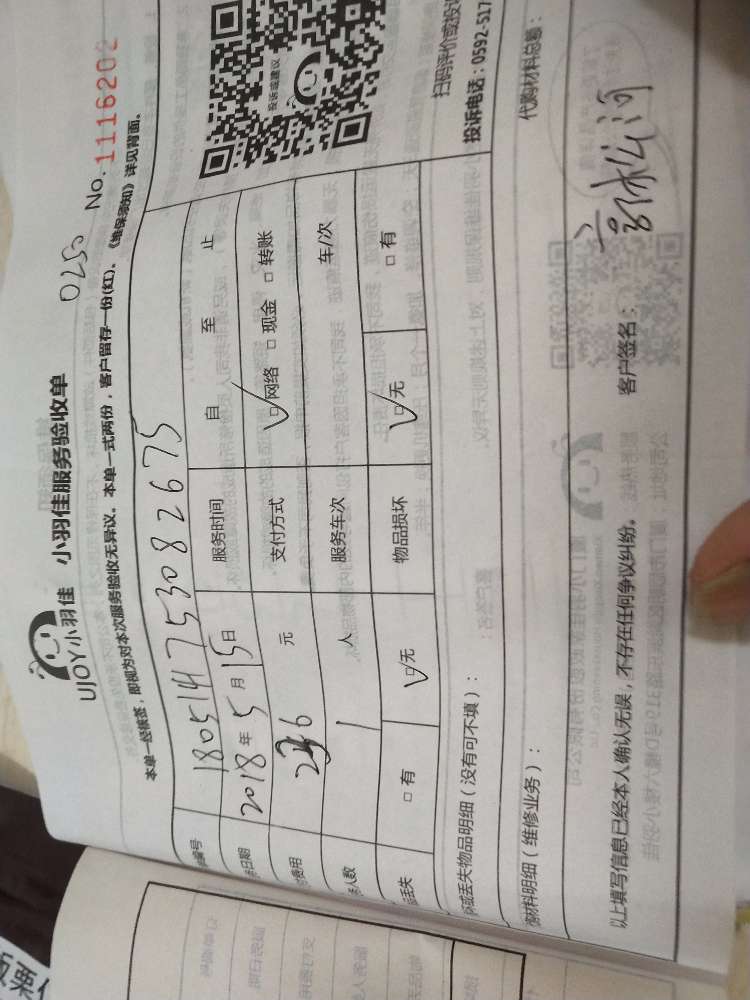 UJOY小羽佳 小羽佳服务验收单 0250 No.1116202
本单一经核签，即视为对本次服务验收无异议。本单一式两份，客户留存一份(红)。《维保须知》详见背面。
编号 180514753082675
日期 2018年5月15日 服务时间 自 至 止
费用 元 支付方式 ☑网络 □现金 □转账
人数 1人 服务车次 车/次
丢失 □有 ☑无 物品损坏 ☑无 □有
投诉或建议
扫码评价或投诉
投诉电话：0592-517
丢失物品明细（没有可不填）：
材料明细（维修业务）： 代购材料总额：
以上填写信息已经本人确认无误，不存在任何争议纠纷。 客户签名：